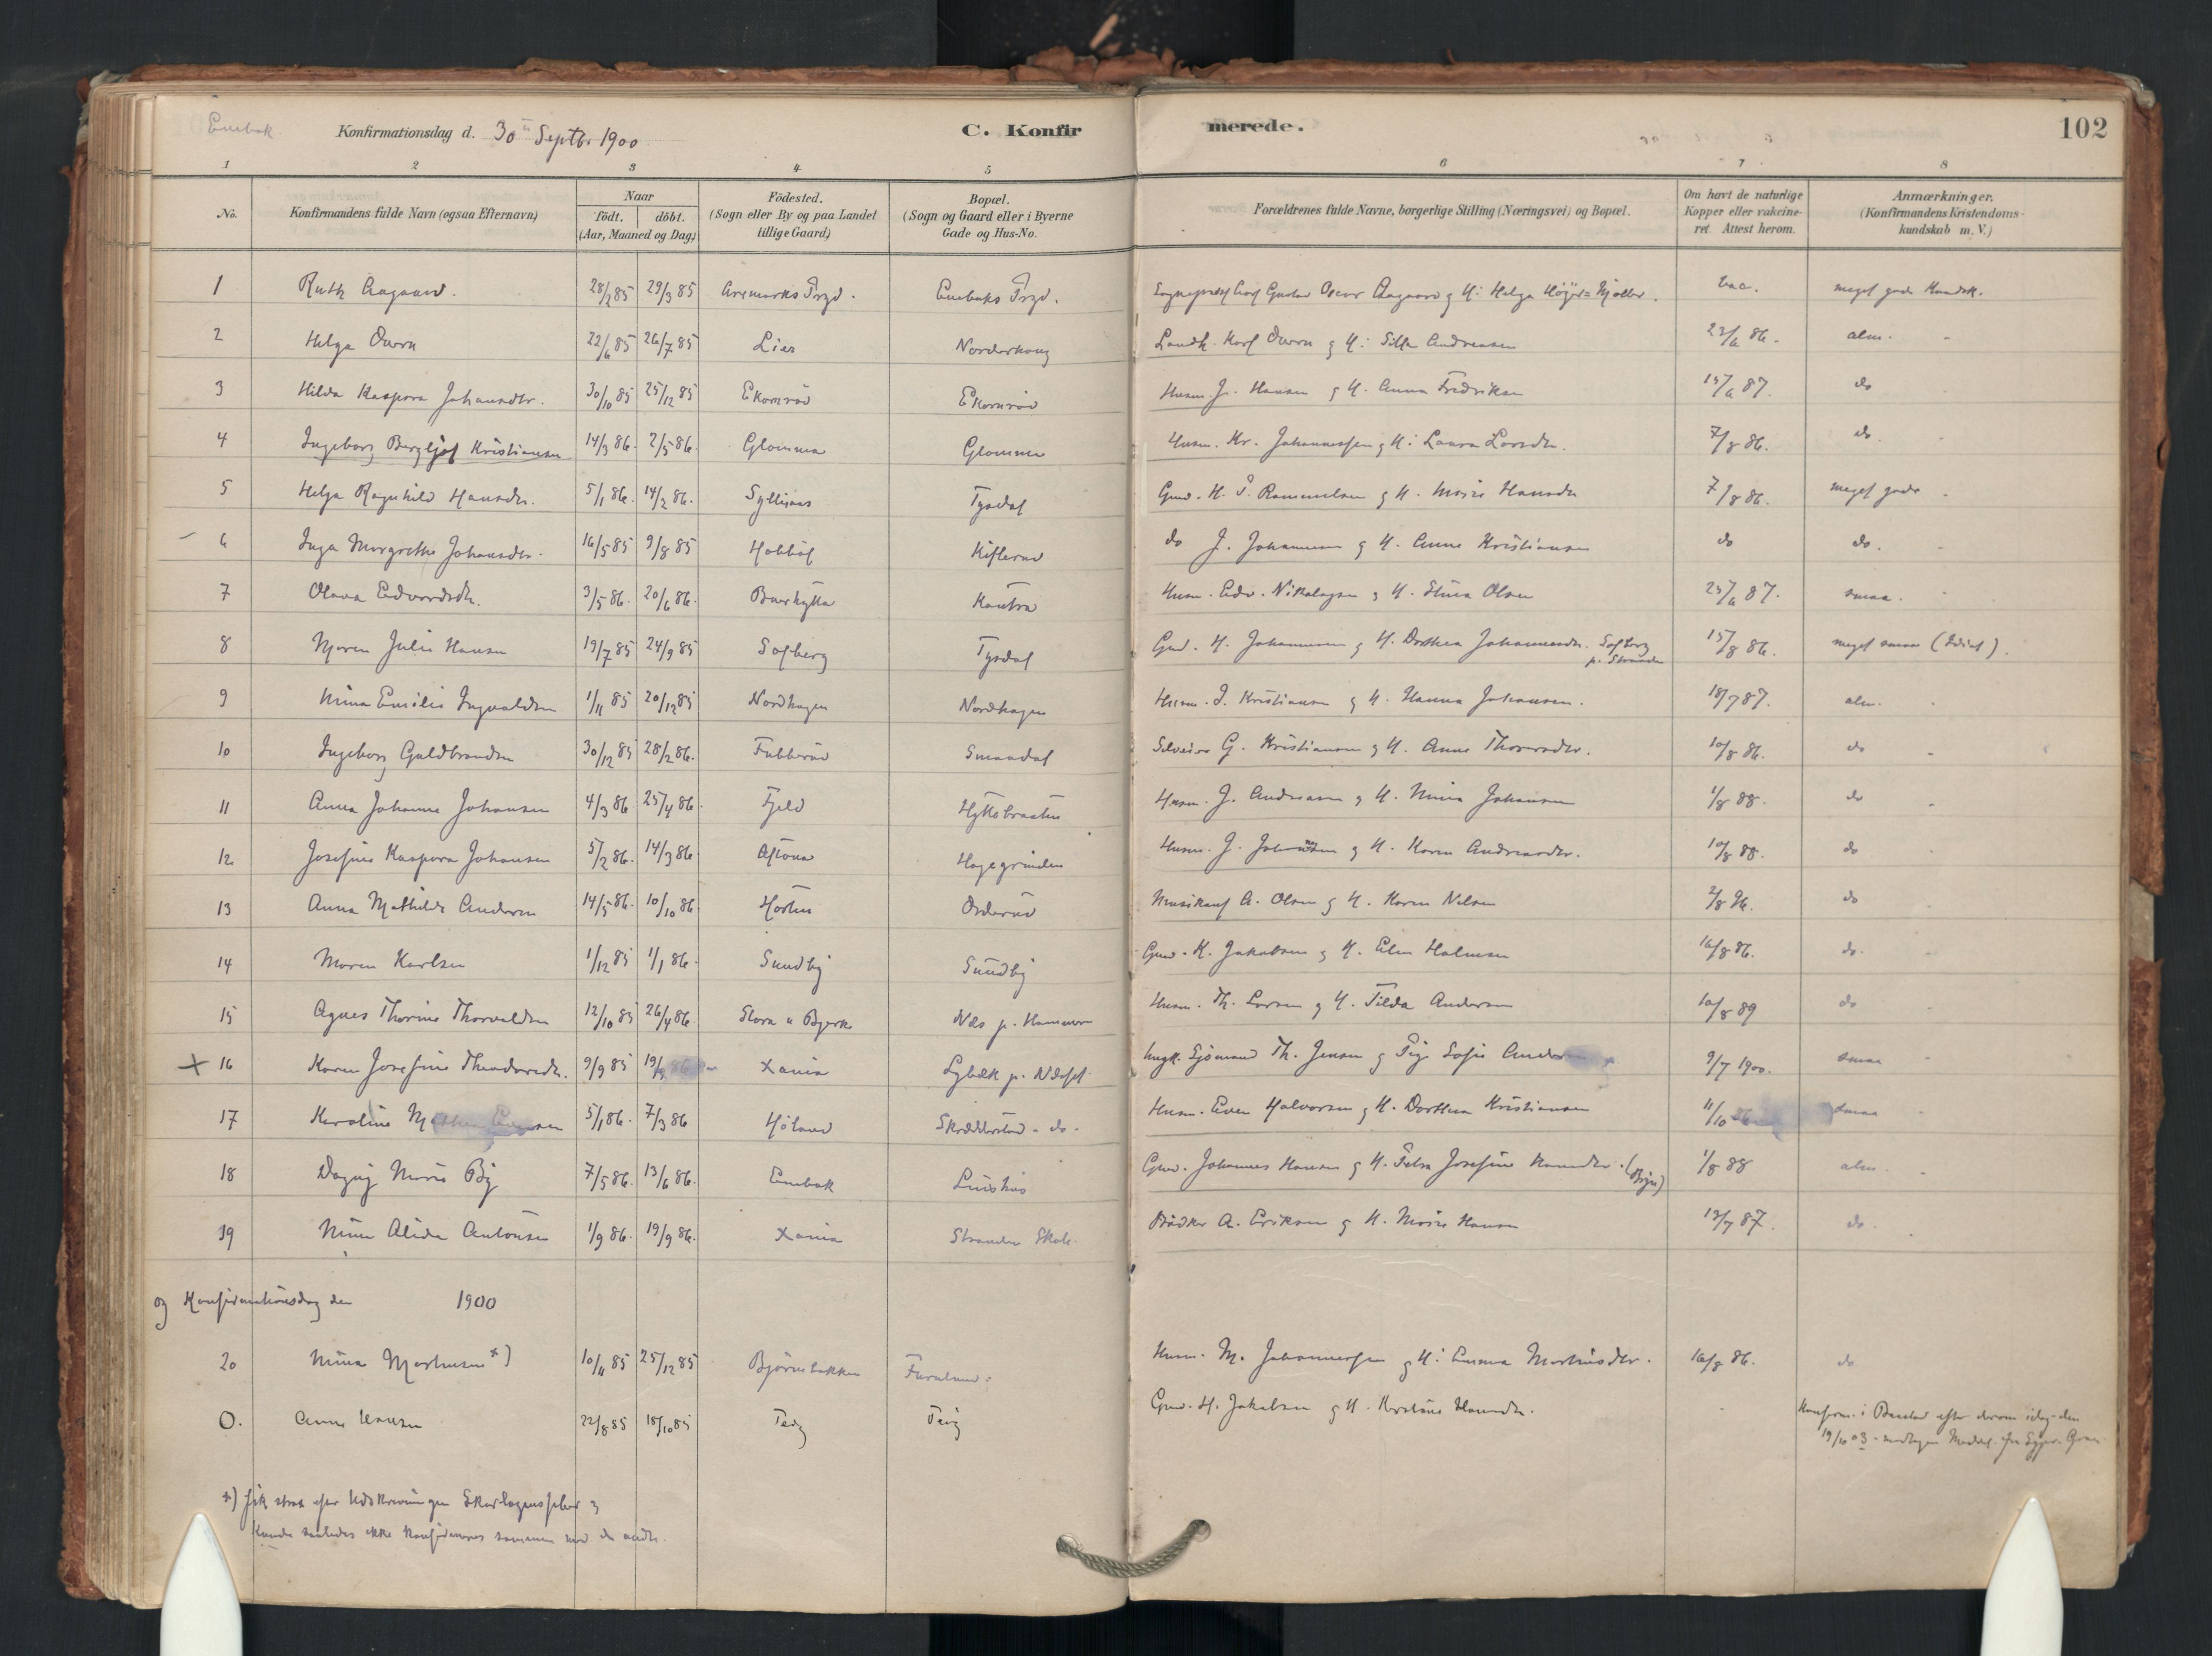 Enebak Konfirmationsdag d. 30 Septbr 1900 C. Konfirmerede. 102
1 2 3 4 5 6 7 8
No. Konfirmandens fulde Navn (ogsaa Efternavn) Naar födt. döbt. (Aar, Maaned og Dag.) Födested. (Sogn eller By og paa Landet tillige Gaard.) Bopæl. (Sogn og Gaard eller i Byerne Gade og Hus-No. Forældrenes fulde Navne, borgerlige Stilling (Næringsvei) og Bopæl. Om havt de naturlige Kopper eller vakcineret. Attest herom. Anmærkninger. (Konfirmandens Kristendomskundskab m. V.)
1 Ruth Aagaard. 28/2 85 29/3 85 Aremarks Prgd. Enebaks Prgd. Gustav Oscar Aagaard og H: Helga Höyer-Mjöller. vac. meget gode Kundsk.
2 Helga Owrn 22/6 85 26/7 85 Lier Norderhaug Landh. Karl Owrn og H: Andreasen 23/6 86. alm.
3 Hilda Kaspara Johansdtr. 30/10 85 25/12 85 Ekornröd Ekornröd Husm. J. Hansen og H. Anna Fredriksen 15/6 87. do
4 Ingeborg Bergljot Kristiansen 14/3 86. 2/5 86. Glomma Glomma Husm. Kr. Johannessen og H: Laura Larsdtr. 7/8 86. do.
5 Helga Ragnhild Hansdtr. 5/1 86. 14/2 86. Tysdal Gmd. H. P. Rammelsen og H. Marie Hansdtr 7/8 86. meget gode
6 Inga Margrethe Johansdtr. 16/5 85 9/8 85 Kiflerud do J. Johannesen og H. Anne Kristiansen do do.
7 Olava Edvardsdtr. 3/5 86. 20/6 86. Husm. Edv. Nikolaysen og H. Stina Olsen 23/6 87. smaa.
8 Maren Julie Hansen 19/7 85 24/9 85 Sofberg Tysdal Gmd. H. Johannesen og H. Dorthea Johannesdtr. Sofberg p. Stranden 15/8 86. meget smaa (Idiot).
9 Mina Emilie Ingvaldsen 1/11 85 20/12 85 Nordhagen Nordhagen Husm. I. Kristiansen og H. Hanna Johansen. 18/7 87. alm.
10 Ingeborg Guldbrandsen 30/12 85 28/2 86. Smaadal G. Kristiansen og H. Anne Thoresdtr. 10/8 86. do
11 Anna Johanne Johansen 4/3 86 25/4 86. Fjeld Hyttebraaten Husm. J. Andreasen og H. Mina Johansen 1/8 88. do
12 Josefine Kaspara Johansen 5/2 86. 14/3 86. Hagegrinden Husm. J. Johannesen og H. Karen Andreasdtr. 10/8 88. do
13 Anna Mathilde Andersen 14/5 86. 10/10 86. Horten Musikant A. Olsen og H. Karen Nilsen 2/8 do
14 Maren Karlsen 1/12 85 1/1 86. Sundby Sundby Gmd. K. Jakobsen og H. Elen Halvorsen 16/8 86. do.
15 Agnes Thorine Thorvaldsen 12/10 85 26/4 86 Bjerke Næs p. Hammeren Husm. Th. Larsen og H. Tilda Andersen 10/8 89 do
16 Karen Josefine Theodorsdtr. 9/9 85 19/ Xania Lybæk p. Næsset Ungk. Sjömand Th. Jensen og Pige Sofie 9/7 1900. smaa
17 Karoline 5/1 86. 7/3 86 Höland Skrædderstad - do - Husm. Even Halvorsen og H. Dorthea Kristiansen 11/10 smaa
18 Dagny Marie By 7/5 86. 13/6 86. Enebak Gmd. Johannes Hansen og H. Josefine (Byn) 1/8 88 alm.
19 Mina Alida Antonsen 1/9 86. 19/9 86. Xania Stranden Skole. Bödker A. Eriksen og H. Marie Hansen 13/7 87. do.
og Konfirmationsdag den 1900
20 Mina Marthinsen *) 10/11 85 25/12 85 Björnebakken Furulund. Husm. M. Johannessen og H: Emma Martinsdtr. 16/8 86. do
O. Anne Hansen 22/8 85 18/10 85 Teig Teig Gmd. H. Jakobsen og H. Kristine Hansdtr.
Konfirm. i
19/10 03
*) fik strax efter Udskrivningen Skarlagensfeber og
kunde saaledes ikke konfirmeres sammen med de andre.